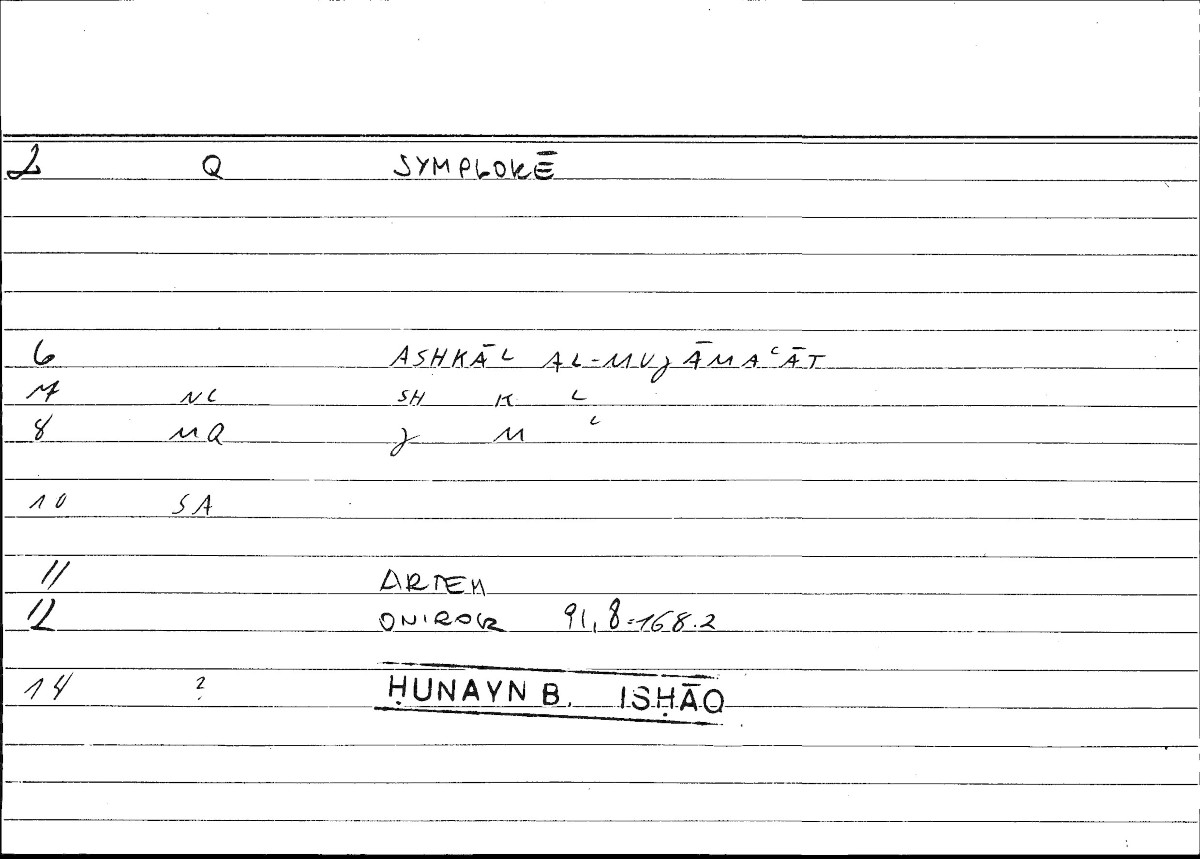 2 Q SYMPLOKĒ
6 ASHKĀL AL-MUJĀMAʿĀT
7 NC SH K L
8 MQ J M ʿ
10 SA
11 ARTEM
12 ONIROCR 91,8=168.2
14 ? ḤUNAYN B. ISḤĀQ